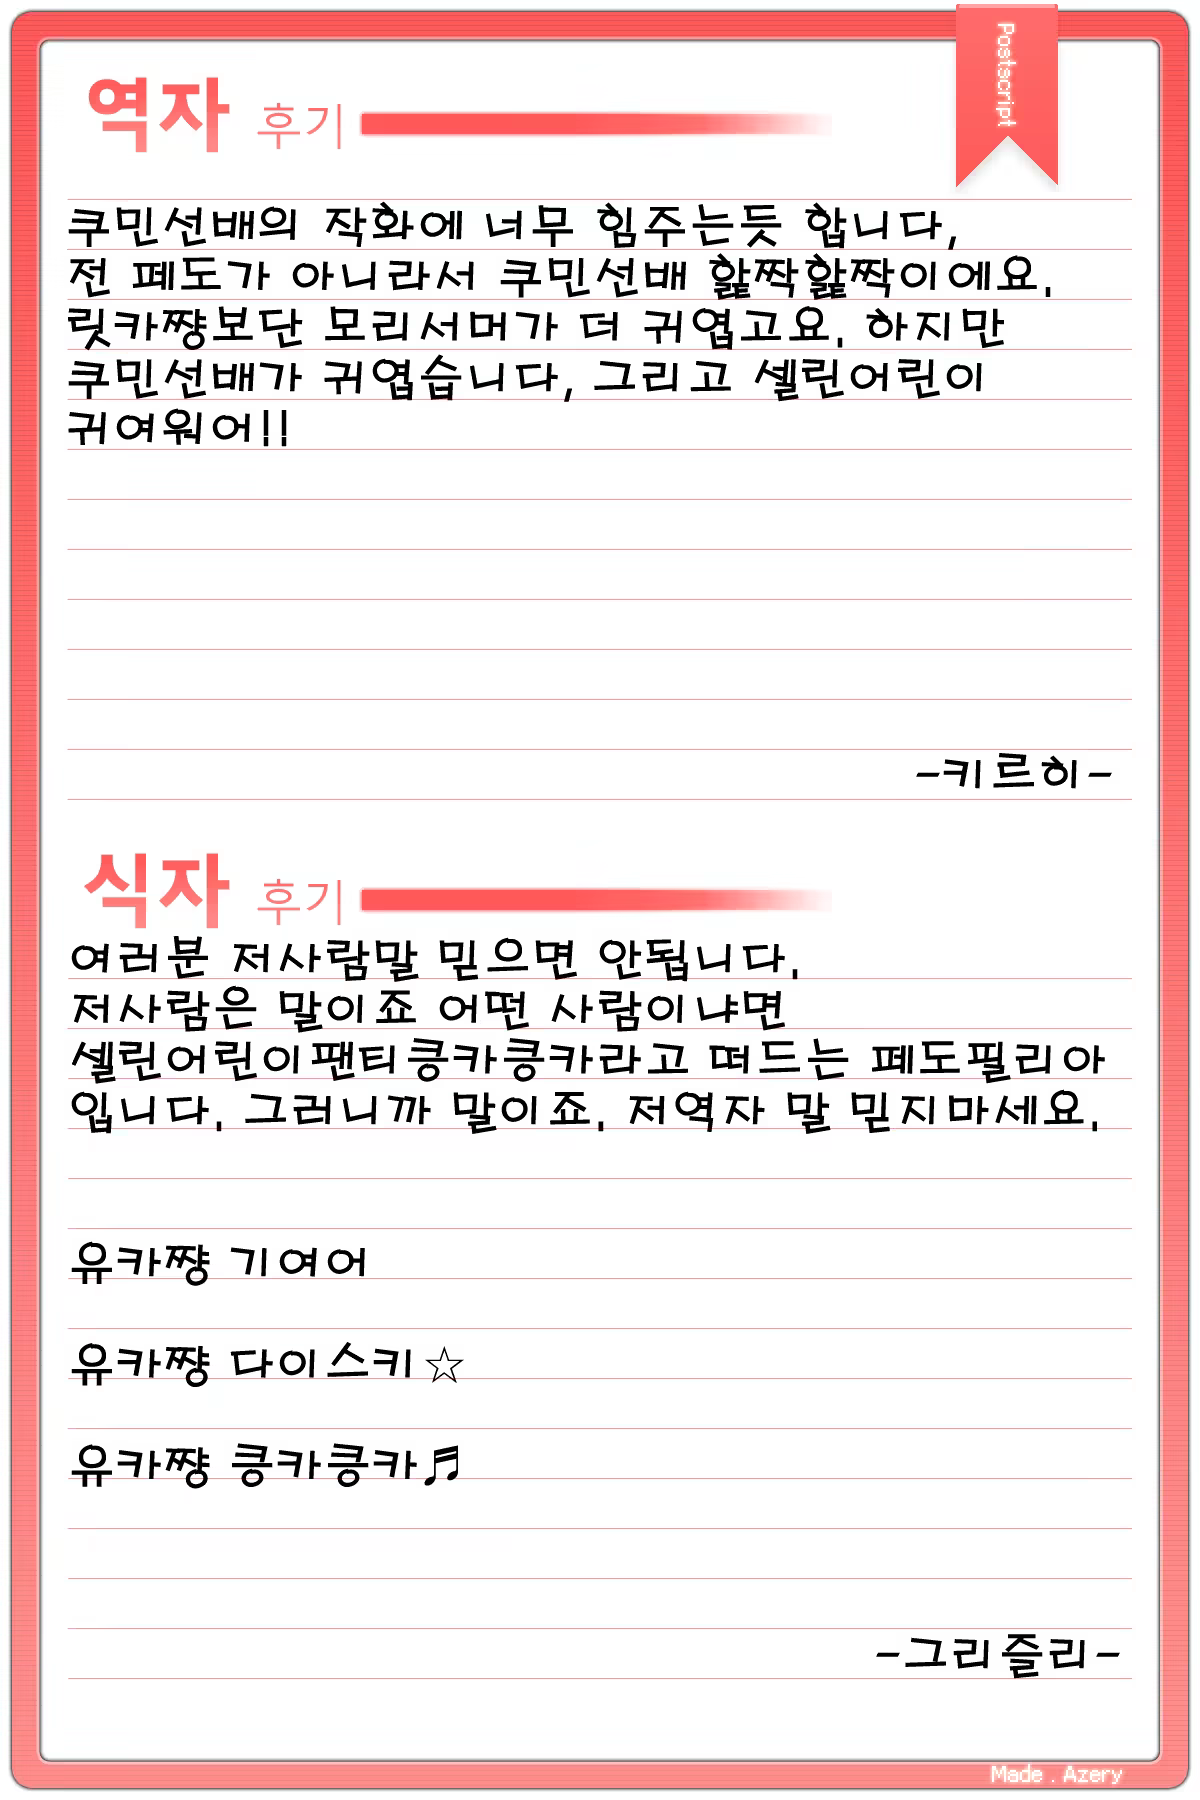 Postscript
역자 후기
쿠민선배의 작화에 너무 힘주는듯 합니다,
전 페도가 아니라서 쿠민선배 핥짝핥짝이에요.
릿카쨩보단 모리서머가 더 귀엽고요. 하지만
쿠민선배가 귀엽습니다, 그리고 셀린어린이
귀여워어!!
-키르히-
식자 후기
여러분 저사람말 믿으면 안됩니다.
저사람은 말이죠 어떤 사람이냐면
셀린어린이팬티킁카킁카라고 떠드는 페도필리아
입니다. 그러니까 말이죠. 저역자 말 믿지마세요.
유카쨩 기여어
유카쨩 다이스키☆
유카쨩 킁카킁카♬
-그리즐리-
Made . Azery